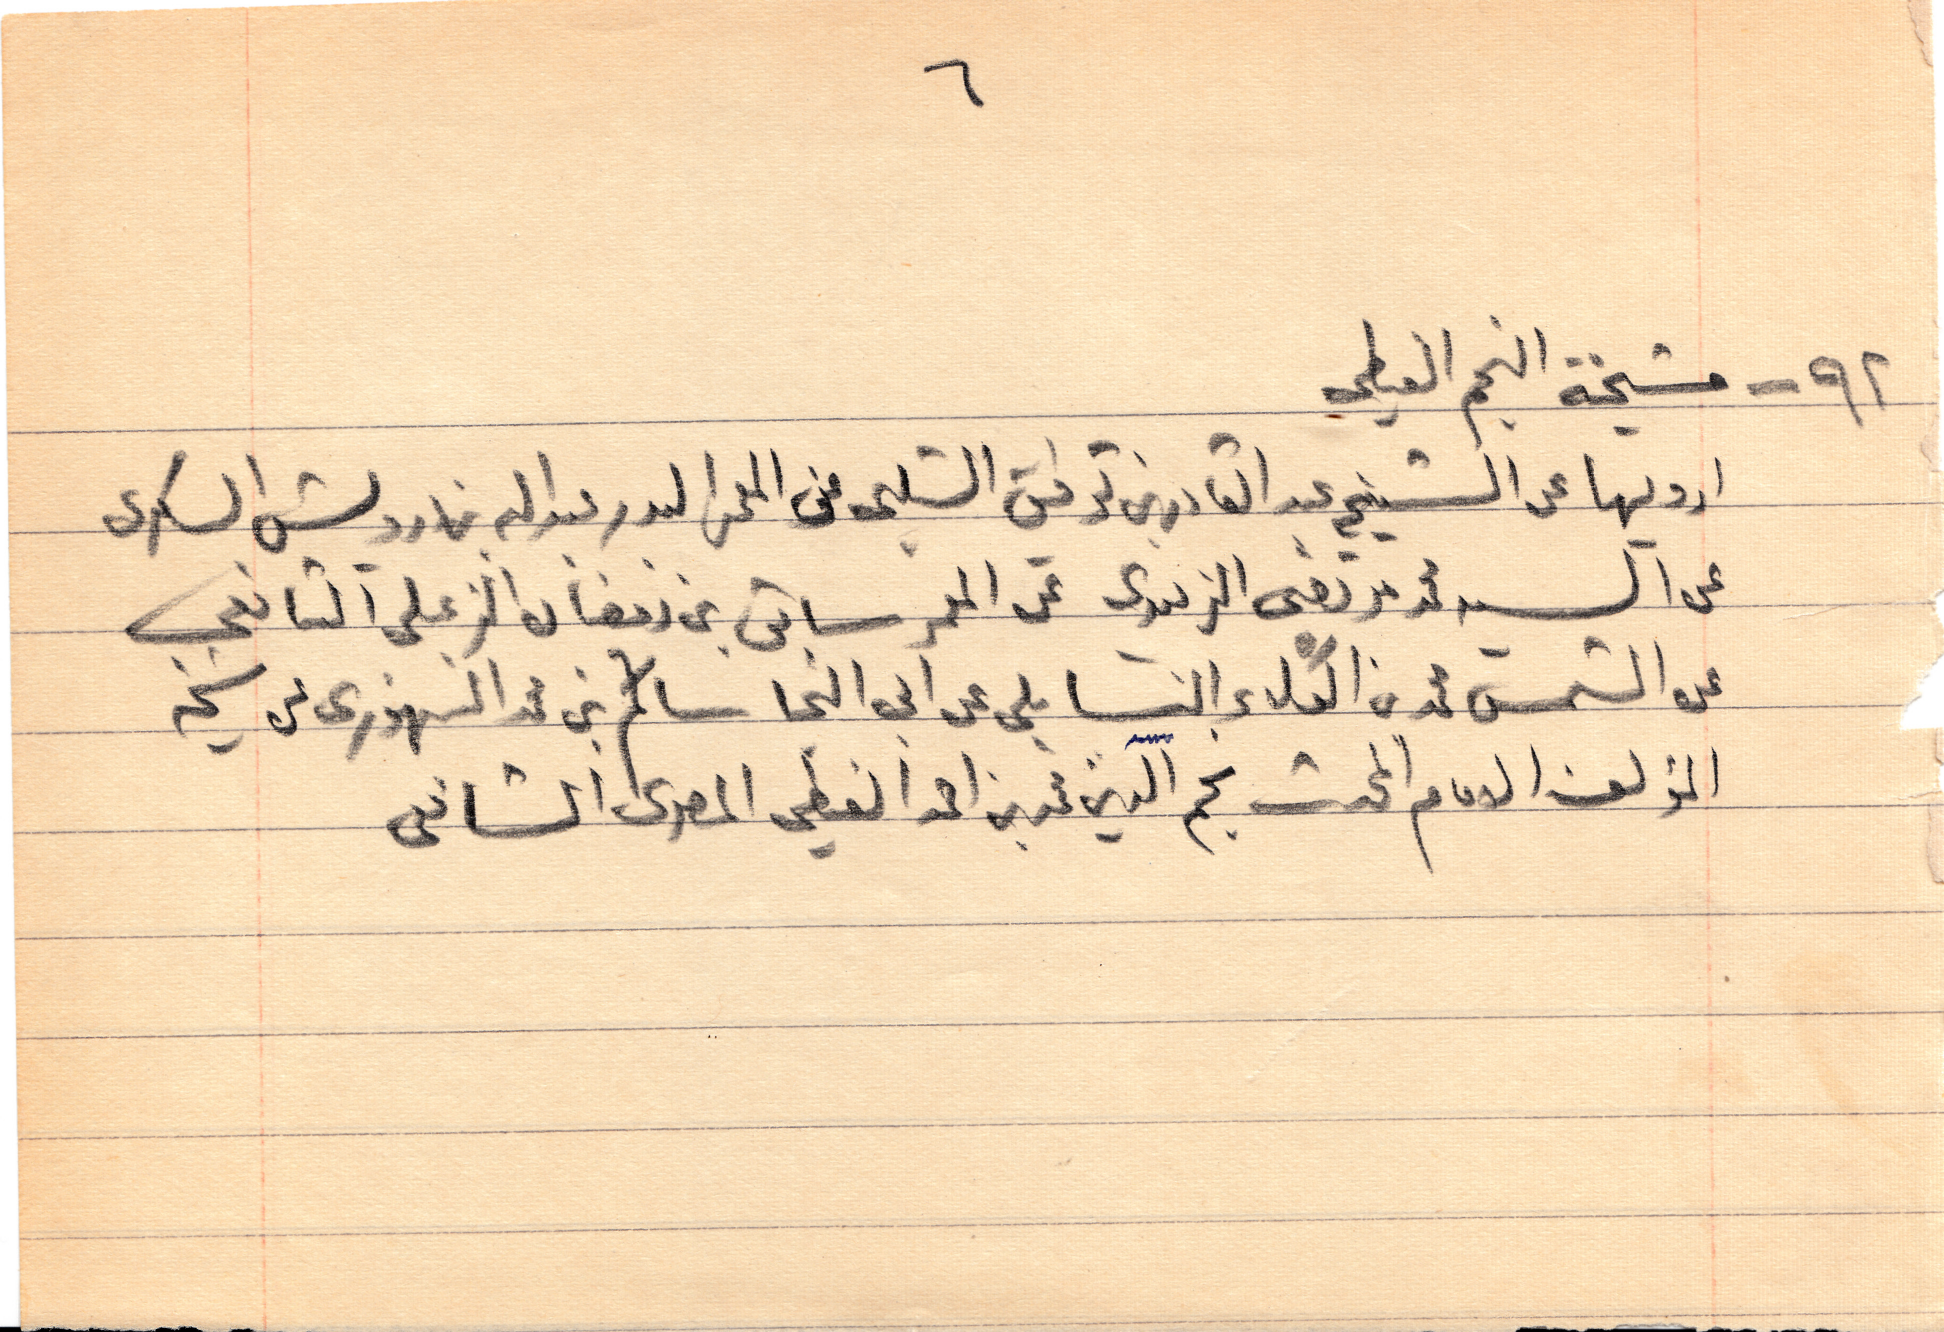 ٦
٩٢ - مشيخة النجم الغيطي
ارويها عن الشيخ عبد القادر بن توفيق الشلبي عن المعمر البدر عبد الله بن درويش السكرى
عن السيد محمد مرتضى الزبيدى عن المعمر سابق بن رمضان الزعبلى الشافعي
عن الشمس محمد بن العلاء البابلى عن ابى النجا سالم بن محمد السنهورى عن شيخه
المؤلف الامام المحدث نجم الدين محمد بن احمد الغيطى المصرى الشافعى